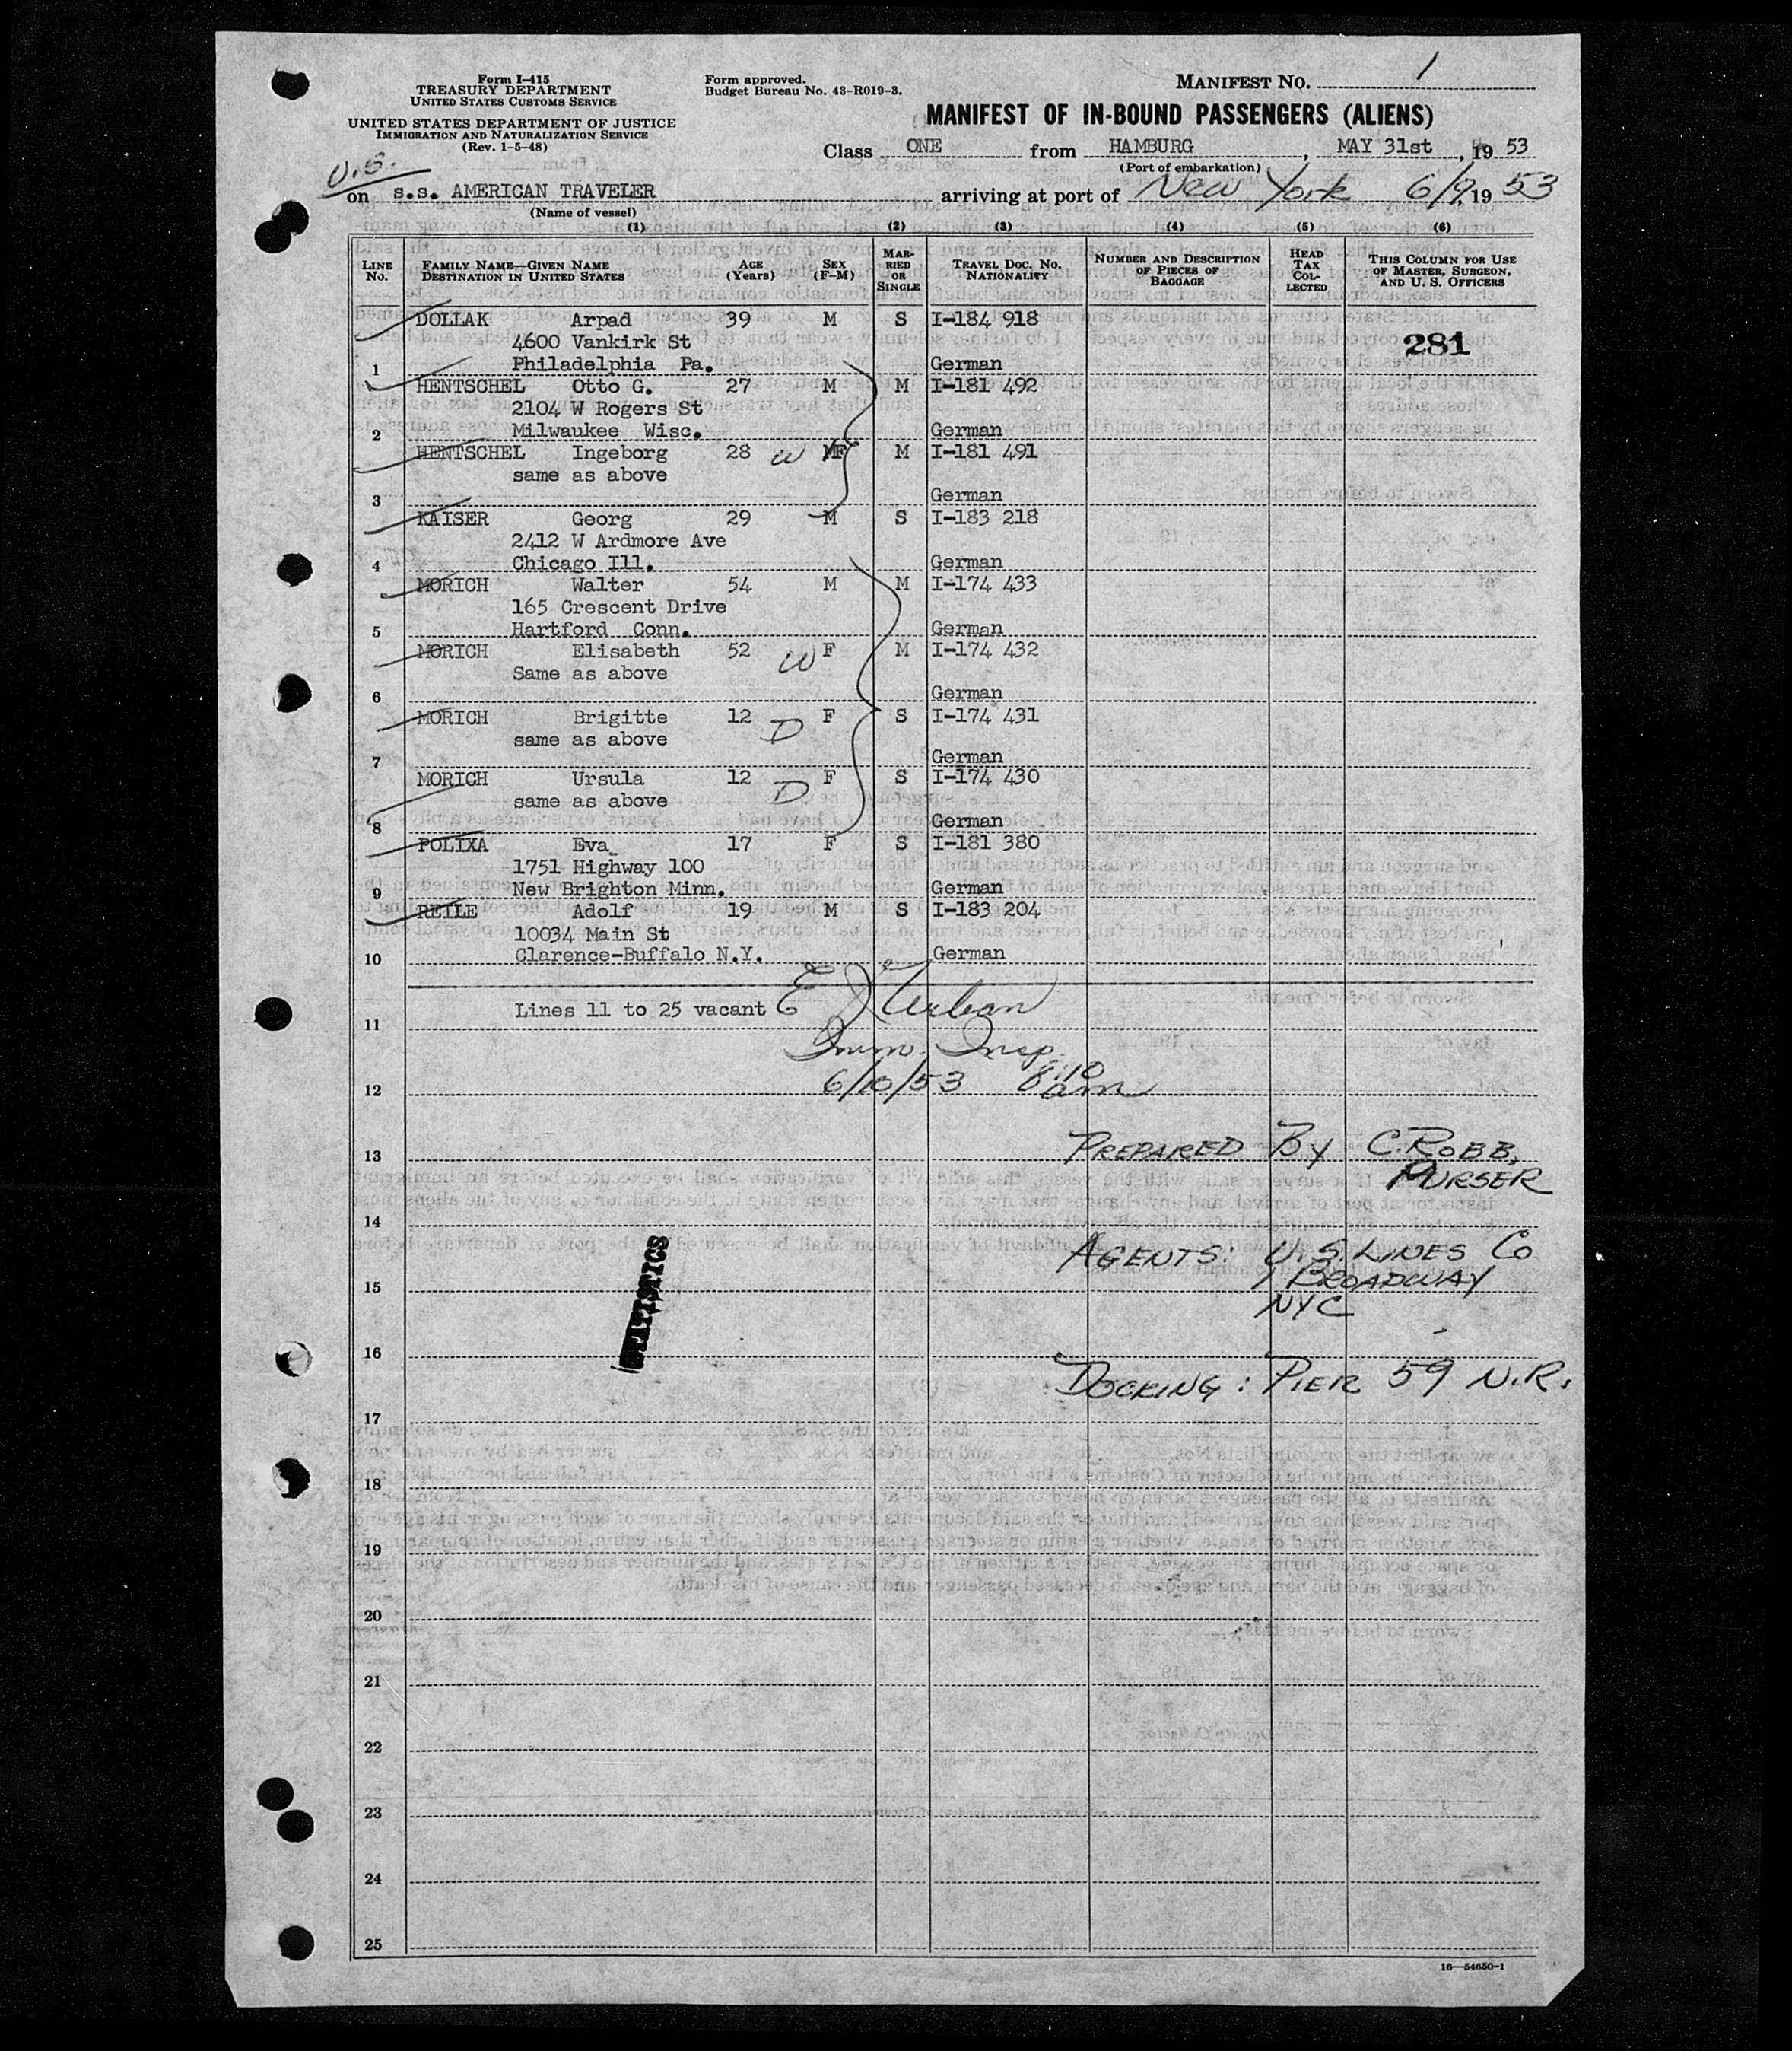 Form I-415
TREASURY DEPARTMENT
UNITED STATES CUSTOMS SERVICE
UNITED STATES DEPARTMENT OF JUSTICE
IMMIGRATION AND NATURALIZATION SERVICE
(Rev. 1-5-48)
Form approved.
Budget Bureau No. 43-R019-3.
MANIFEST NO. 1
MANIFEST OF IN-BOUND PASSENGERS (ALIENS)
Class ONE from HAMBURG, MAY 31st, 1953
(Port of embarkation)
U.S.
on S.S. AMERICAN TRAVELER arriving at port of New York 6/9, 1953
(Name of vessel)
(1) (2) (3) (4) (5) (6)
LINE NO. FAMILY NAME—GIVEN NAME DESTINATION IN UNITED STATES AGE (Years) SEX (F-M) MARRIED OR SINGLE TRAVEL DOC. NO. NATIONALITY NUMBER AND DESCRIPTION OF PIECES OF BAGGAGE HEAD TAX COLLECTED THIS COLUMN FOR USE OF MASTER, SURGEON, AND U. S. OFFICERS
DOLLAK Arpad 39 M S I-184 918
4600 Vankirk St 281
1 Philadelphia Pa. German
HENTSCHEL Otto G. 27 M M I-181 492
2104 W Rogers St
2 Milwaukee Wisc. German
HENTSCHEL Ingeborg 28 W F M I-181 491
same as above
3 German
KAISER Georg 29 M S I-183 218
2412 W Ardmore Ave
4 Chicago Ill. German
MORICH Walter 54 M M I-174 433
165 Crescent Drive
5 Hartford Conn. German
MORICH Elisabeth 52 W F M I-174 432
Same as above
6 German
MORICH Brigitte 12 D F S I-174 431
same as above
7 German
MORICH Ursula 12 D F S I-174 430
same as above
8 German
POLIXA Eva 17 F S I-181 380
1751 Highway 100
9 New Brighton Minn. German
REILE Adolf 19 M S I-183 204
10034 Main St
10 Clarence-Buffalo N.Y. German
Lines 11 to 25 vacant E
11
Imm. Insp.
12 6/10/53 8:10 am
13 PREPARED BY C. ROBB,
PURSER
14
AGENTS: U.S. LINES Co
15 1 BROADWAY
NYC
STATISTICS
16
DOCKING: PIER 59 N.R.
17
18
19
20
21
22
23
24
25
16—54650-1